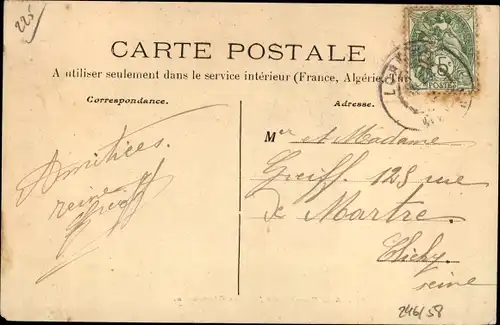 225
CARTE POSTALE
A utiliser seulement dans le service intérieur (France, Algérie,
Correspondance.
Adresse.
5c
POSTES
Amitiées.
reine
Mr et Madame
Greiff. 125 rue
de Martre.
Clichy.
Seine
246/58